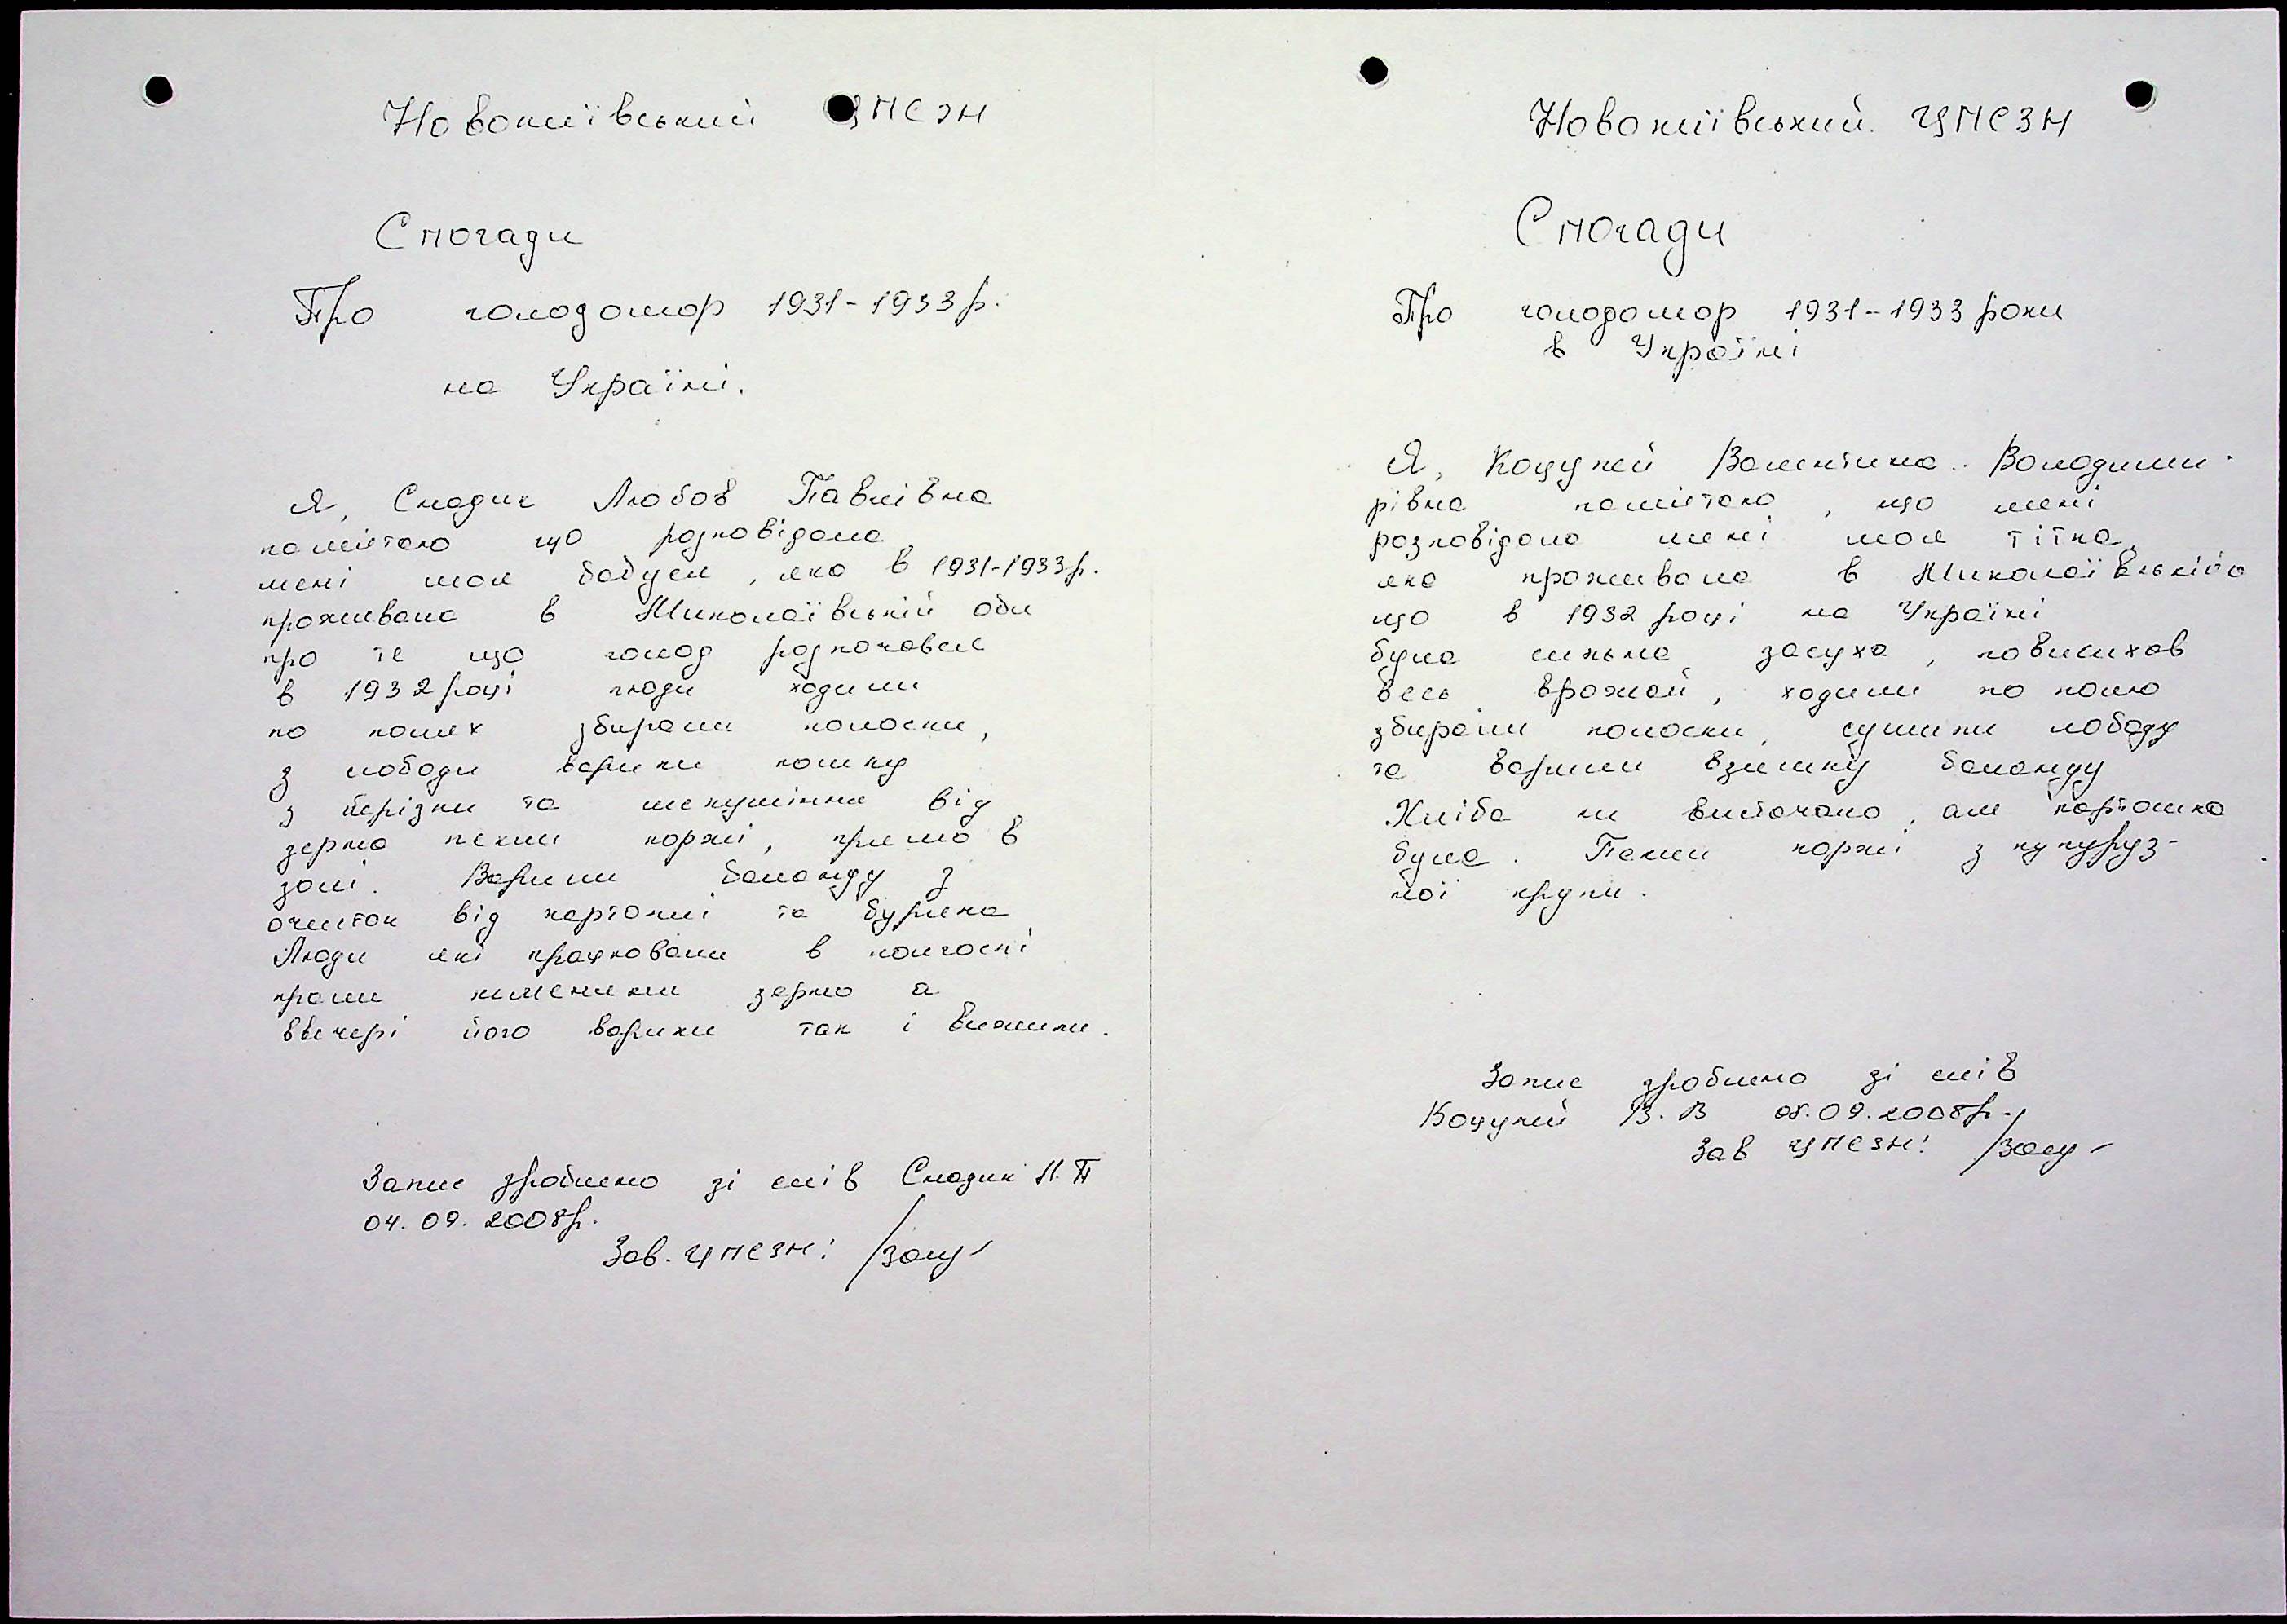 Новокиївський ЦПСЗН
Спогади
Про голодомор 1931-1933р.
на Україні.
Я, Сладик Любов Павлівна
памятаю що розповідала
мені моя бабуся, яка в 1931-1933р.
проживала в Миколаївській обл
про те що голод розпочався
в 1932 році люди ходили
по полях збирали колоски,
з лободи варили кашку
з дерізки та лекушіння від
зерна пекли коржі, прямо в
золі. Варили баланду з
очисток від картоплі та буряка
Люди які працювали в колгоспі
крали жменями зерно а
ввечері його варили так і вижили.
Запис зроблено зі слів Сладик Л.П
04.09.2008р.
Зав. ЦПСЗН:
Новокиївський ЦПСЗН
Спогади
Про голодомор 1931-1933 роки
в Україні
Я, Коцупей Валентина Володими-
рівна памятаю, що мені
розповідала мені моя тітка,
яка проживала в Миколаївській о
що в 1932 році на Україні
була сильна засуха, повисихав
весь врожай, ходили по полю
збирали колоски, сушили лободу
та варили взимку баланду
Хліба не вистачало, але картошка
була. Пекли коржі з кукуруз-
ної крупи.
Запис зроблено зі слів
Коцупей В.В 05.09.2008р.
Зав ЦПСЗН: